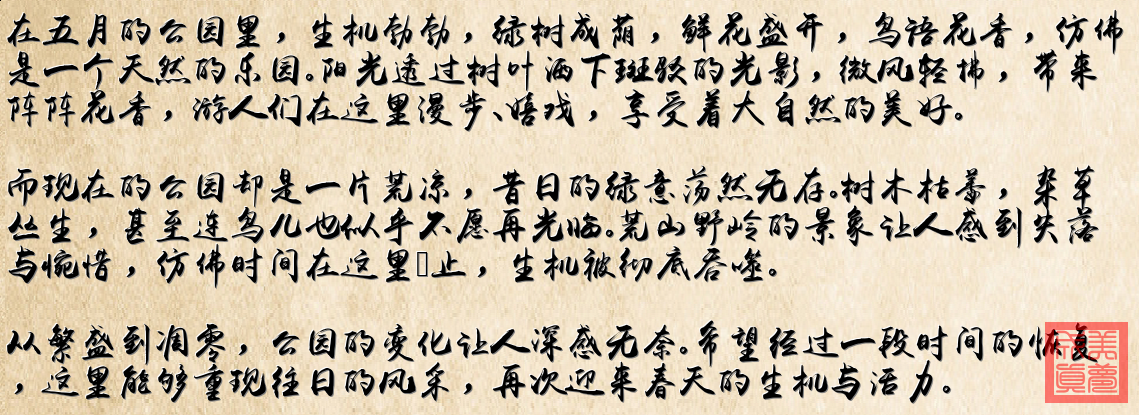 在五月的公园里，生机勃勃，绿树成荫，鲜花盛开，鸟语花香，仿佛
是一个天然的乐园。阳光透过树叶洒下斑驳的光影，微风轻拂，带来
阵阵花香，游人们在这里漫步、嬉戏，享受着大自然的美好。
而现在的公园却是一片荒凉，昔日的绿意荡然无存。树木枯萎，杂草
丛生，甚至连鸟儿也似乎不愿再光临。荒山野岭的景象让人感到失落
与惋惜，仿佛时间在这里止，生机被彻底吞噬。
从繁盛到凋零，公园的变化让人深感无奈。希望经过一段时间的恢复
，这里能够重现往日的风采，再次迎来春天的生机与活力。
美梦成真